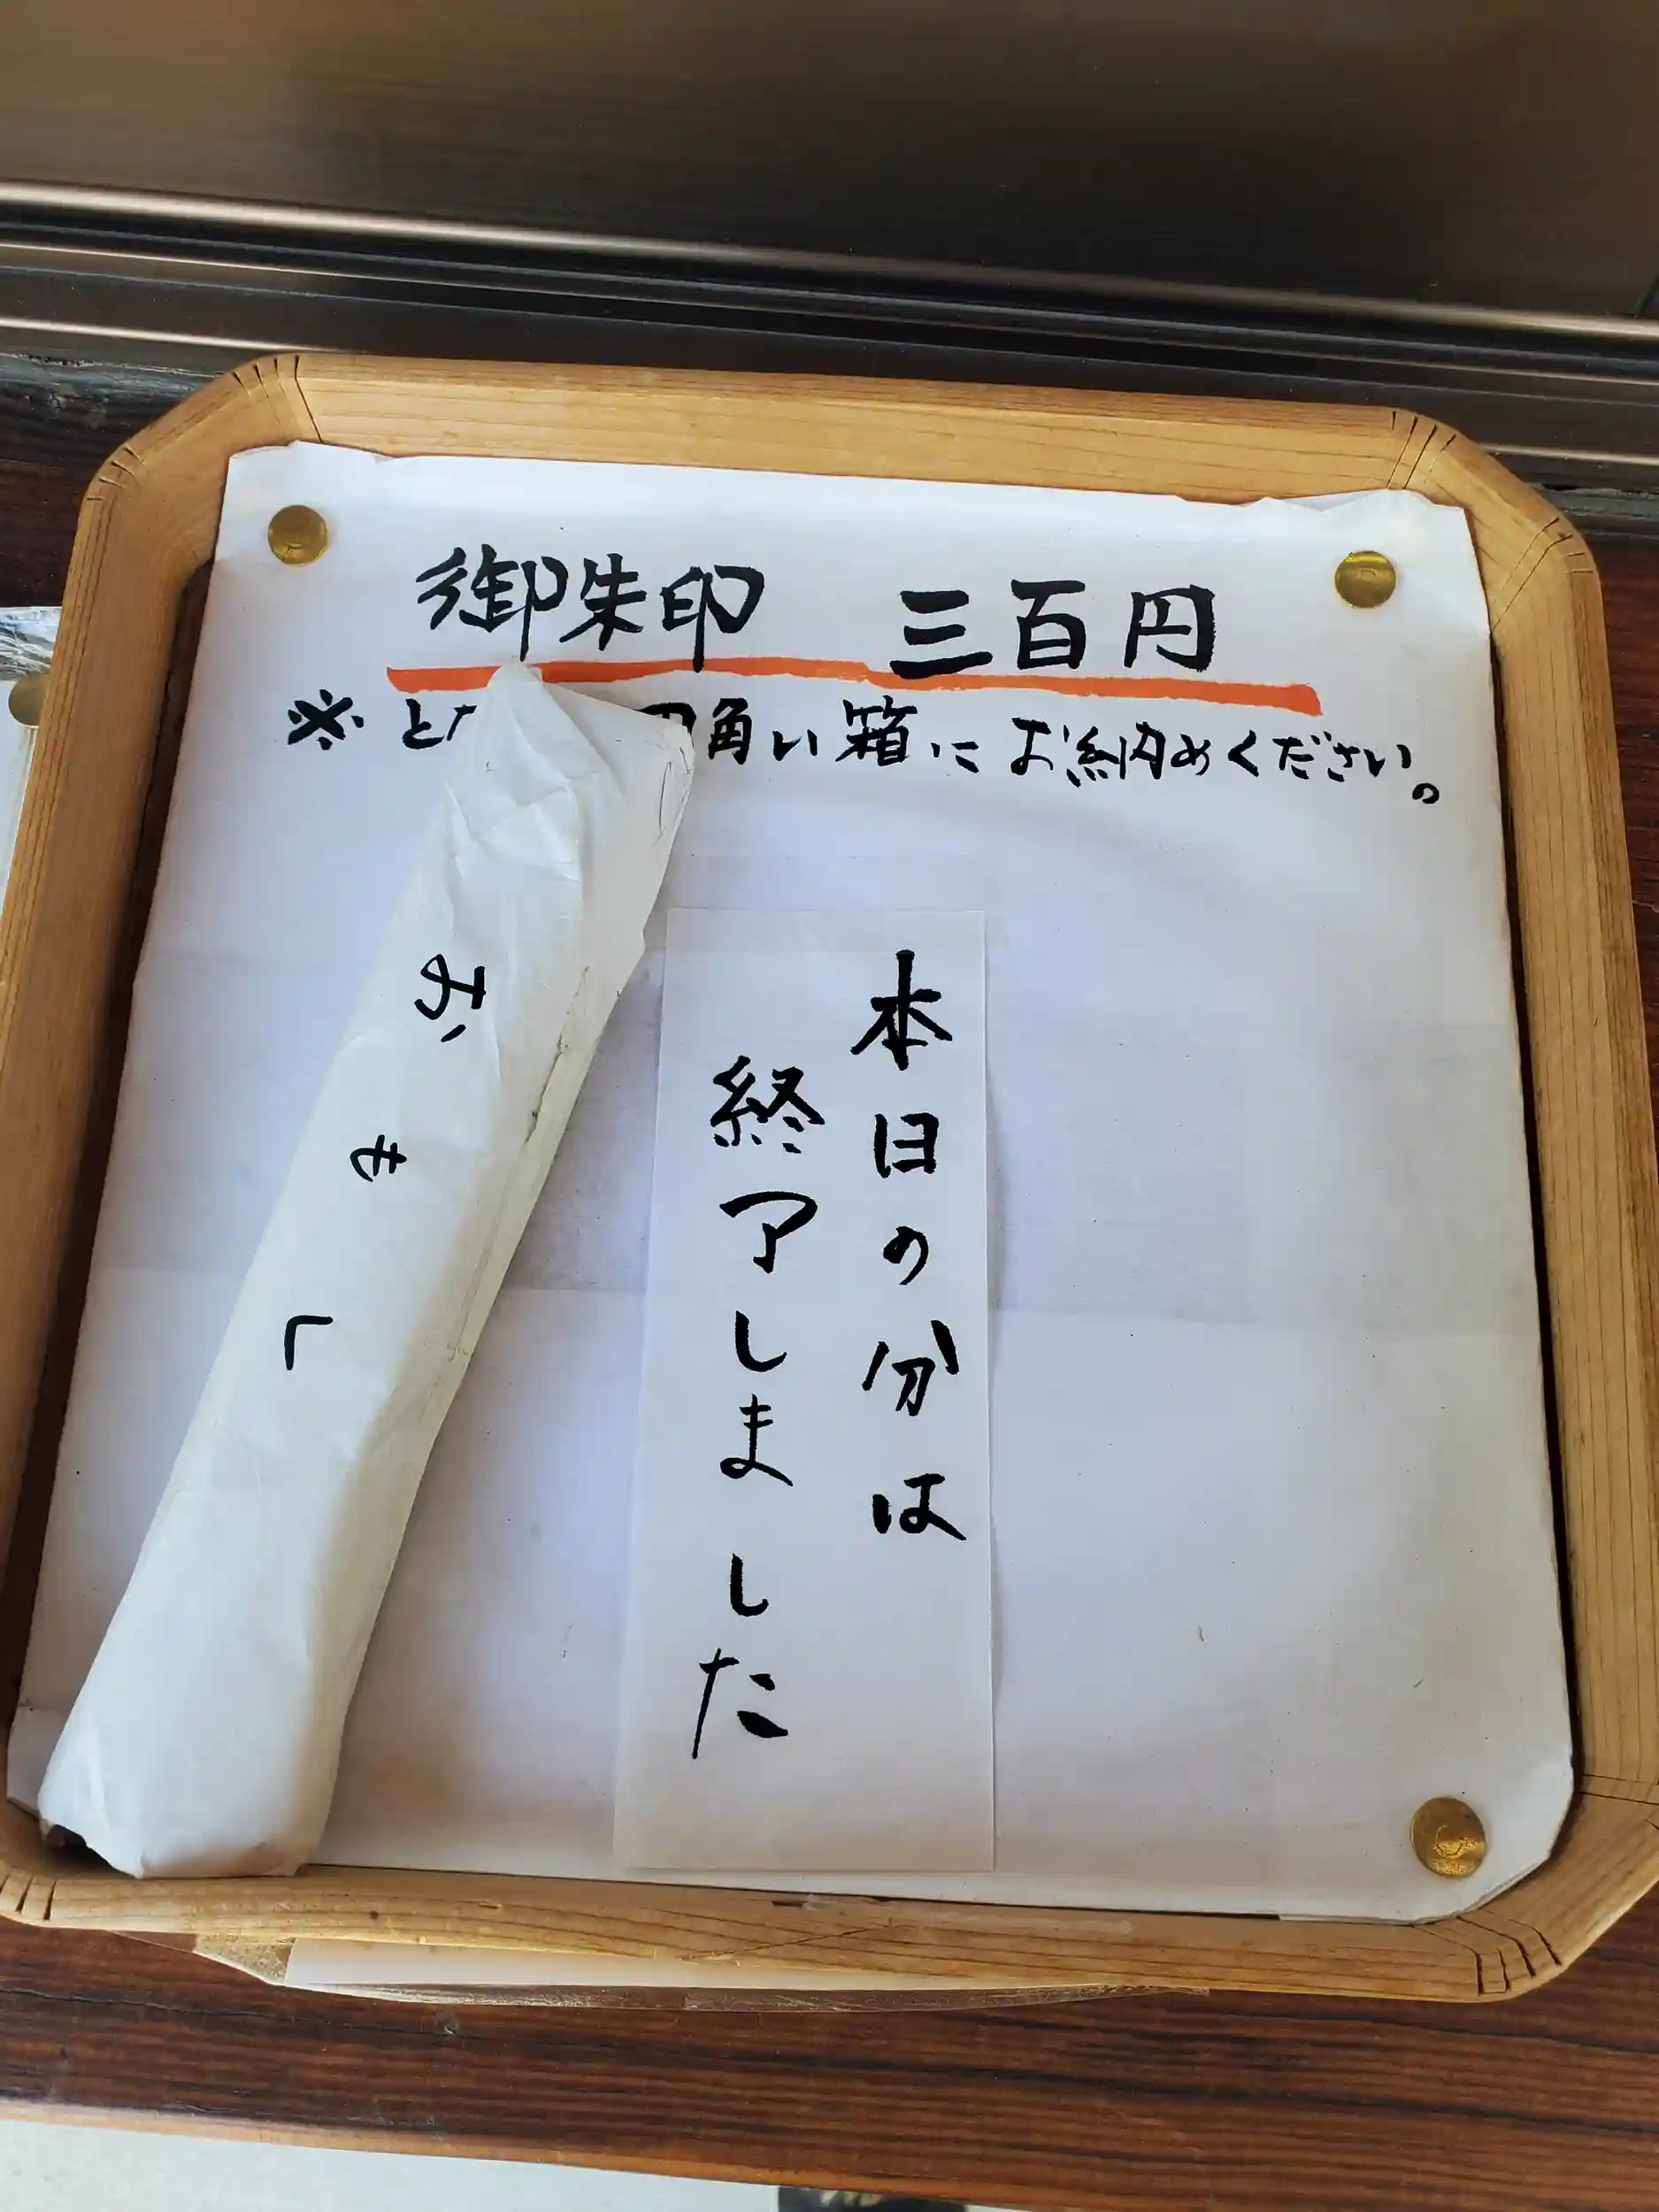 御朱印 三百円
※と 角い箱にお納めください。
本日の分は
終了しました
おもし